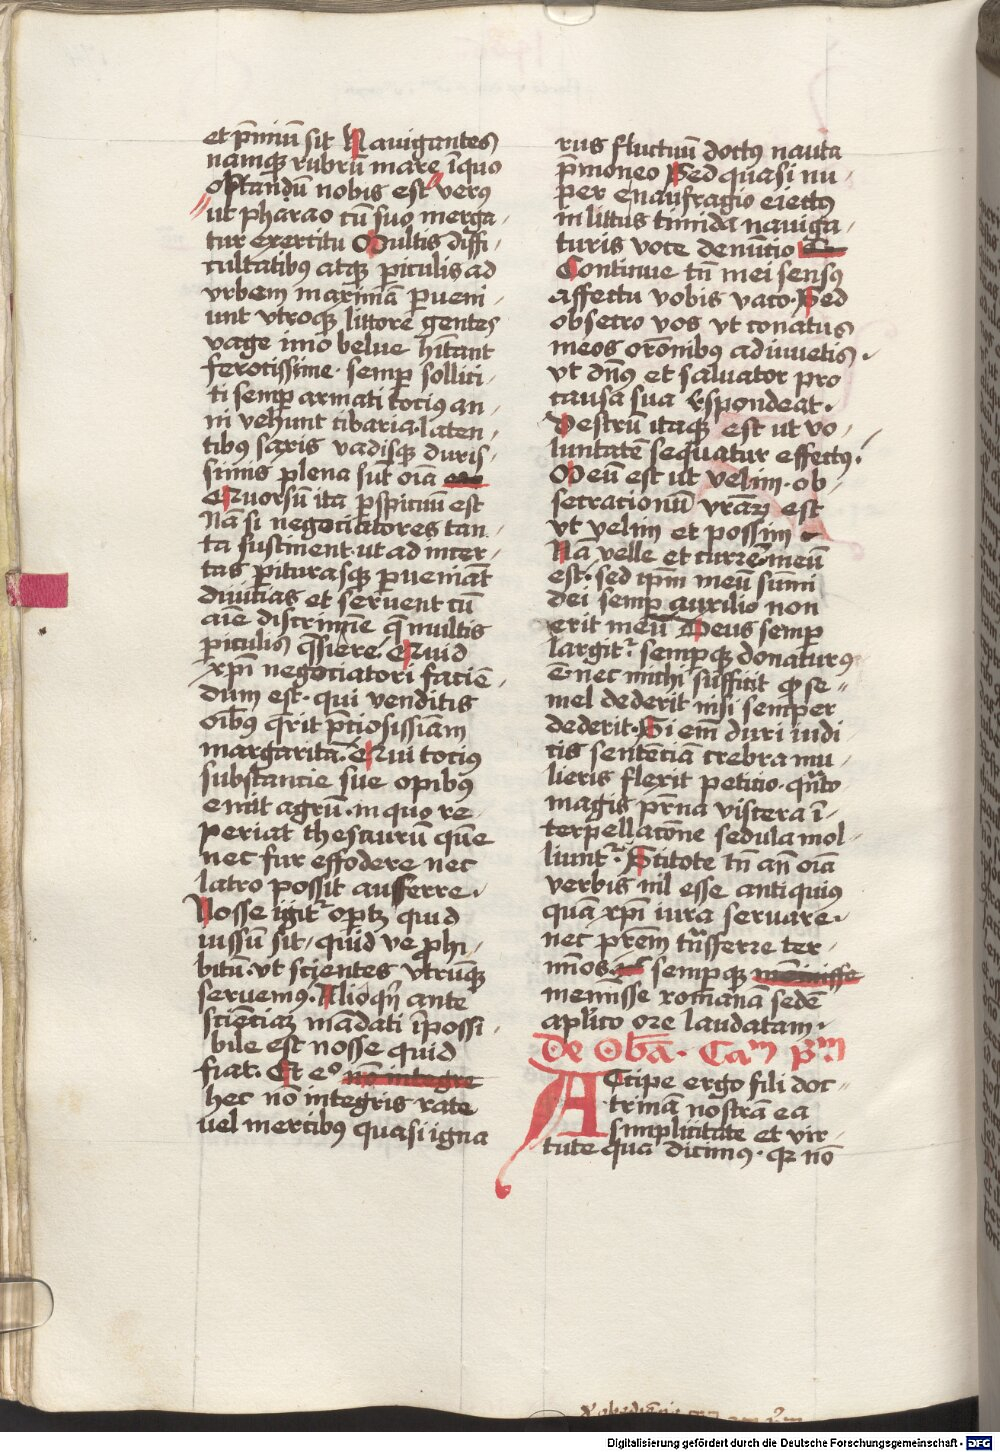 et p̄miū sit Nauigantes
namq̄ꝫ rubrū mare īquo
optandū nobis est verꝰ
ut pharao cū suo merga
tur exercitu Multis diffi
cultatibꝰ atqꝫ ꝑiculis ad
vrbem maximā ꝑueni
unt vtroqꝫ littore gentes
vage imo belue hītant
ferocissime · semꝑ sollici
ti semꝑ armati tocius an
ni vehunt cibaria · laten
tibꝰ saxis vadisqꝫ duris
simis plena sūt oīa
Rursū ita ꝑspicuū est
Nā si negociatores tan
ta sustinent · ut ad incer
tas ꝑiturasqꝫ ꝑueniāt
diuicias et seruent cū
aīe discrimīe q̄ multis
ꝑiculis q̄siere Quid
xp̄i negociatori faciē
dum est · qui venditis
oībꝰ q̄rit p̄ciosissiam
margaritā · Qui tocius
substancie sue opibꝰ
emit agrū · in quo re
periat thesaurū quē
nec fur effodere nec
latro possit aufferre ·
Nosse igit᷑ oportꝫ quid
iussū sit / quid ve ꝓhi
bitū · vt scientes vtrūqꝫ
seruemꝰ · Alioqn̄ ante
scienciaꝫ mādati īpossi
bile est nosse quid
fiat · Et eº nō integre
hec nō integris rate
uel mercibꝰ quasi igna
rus fluctuū doctꝰ nauta
p̄moneo Sed quasi nu
per enaufragio eiectꝰ
in littus timida nauiga
turis voce denūtio
Continue tn̄ mei sensꝰ
affectu vobis vaco · Sed
obsecro vos vt conatus
meos orōnibꝰ adiuuetis ·
vt dn̄s et saluator pro
causa sua respondeat ·
Vestrū itaqꝫ est ut vo
luntatē sequatur effectꝰ ·
Meū est ut velim · ob
secrationū vr̄aꝝ est
vt velim et possim
Nā velle et currē meū
est · sed ip̄m meū summi
dei semꝑ auxilio non
erit meū Deus semꝑ
largit᷑ · semꝑqꝫ donaturꝰ
ē · nec michi sufficit ꝙ se
mel dederit nisi semper
dederit · Si em̄ duri iudi
cis sentenciā crebra mu
lieris flexit peticio · qn̄to
magis pr̄na viscera ī
terpellacōne sedula mol
liunt᷑ · Scitote tn̄ an̄ oīa
verbis nil esse antiquius
quā xp̄i iura seruare ·
nec pr̄em tn̄sferre ter
mīos · semꝑqꝫ meīnisse
meīnisse romanā sedē
apl̄ico ore laudatam ·
De Ob̄a · Caᵐ pᵐ
ACcipe ergo fili doc
trinā nostrā ea
simplicitate et vir
tute qua dicimꝰ · qꝛ nō
Digitalisierung gefördert durch die Deutsche Forschungsgemeinschaft - DFG